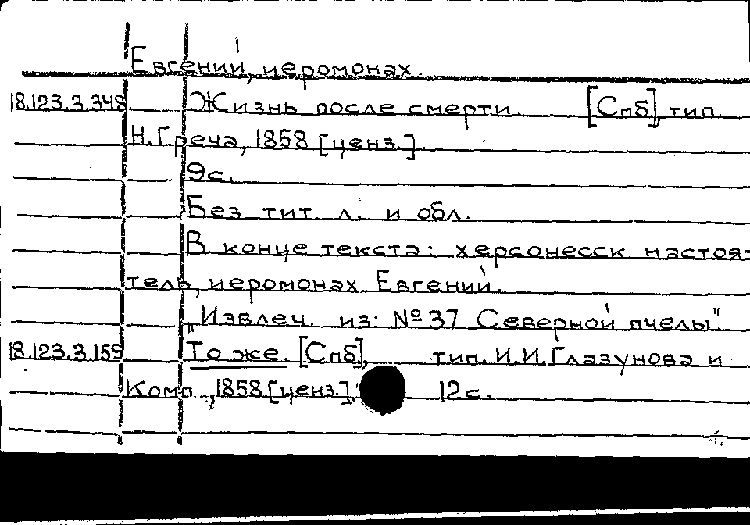 Евгений, иеромонах.
18.123.3.348 Жизнь после смерти. [Спб], тип.
Н. Греча, 1858 [ценз.]
9с.
Без тит. л. и обл.
В конце текста: херсонесск настоя-
тель, иеромонах Евгений.
„Извлеч. из: №37 Северной пчелы".
18.123.3.159 То же. [Спб], тип. И.И.Глазунова и
Комп., 1858 [ценз.], 12с.